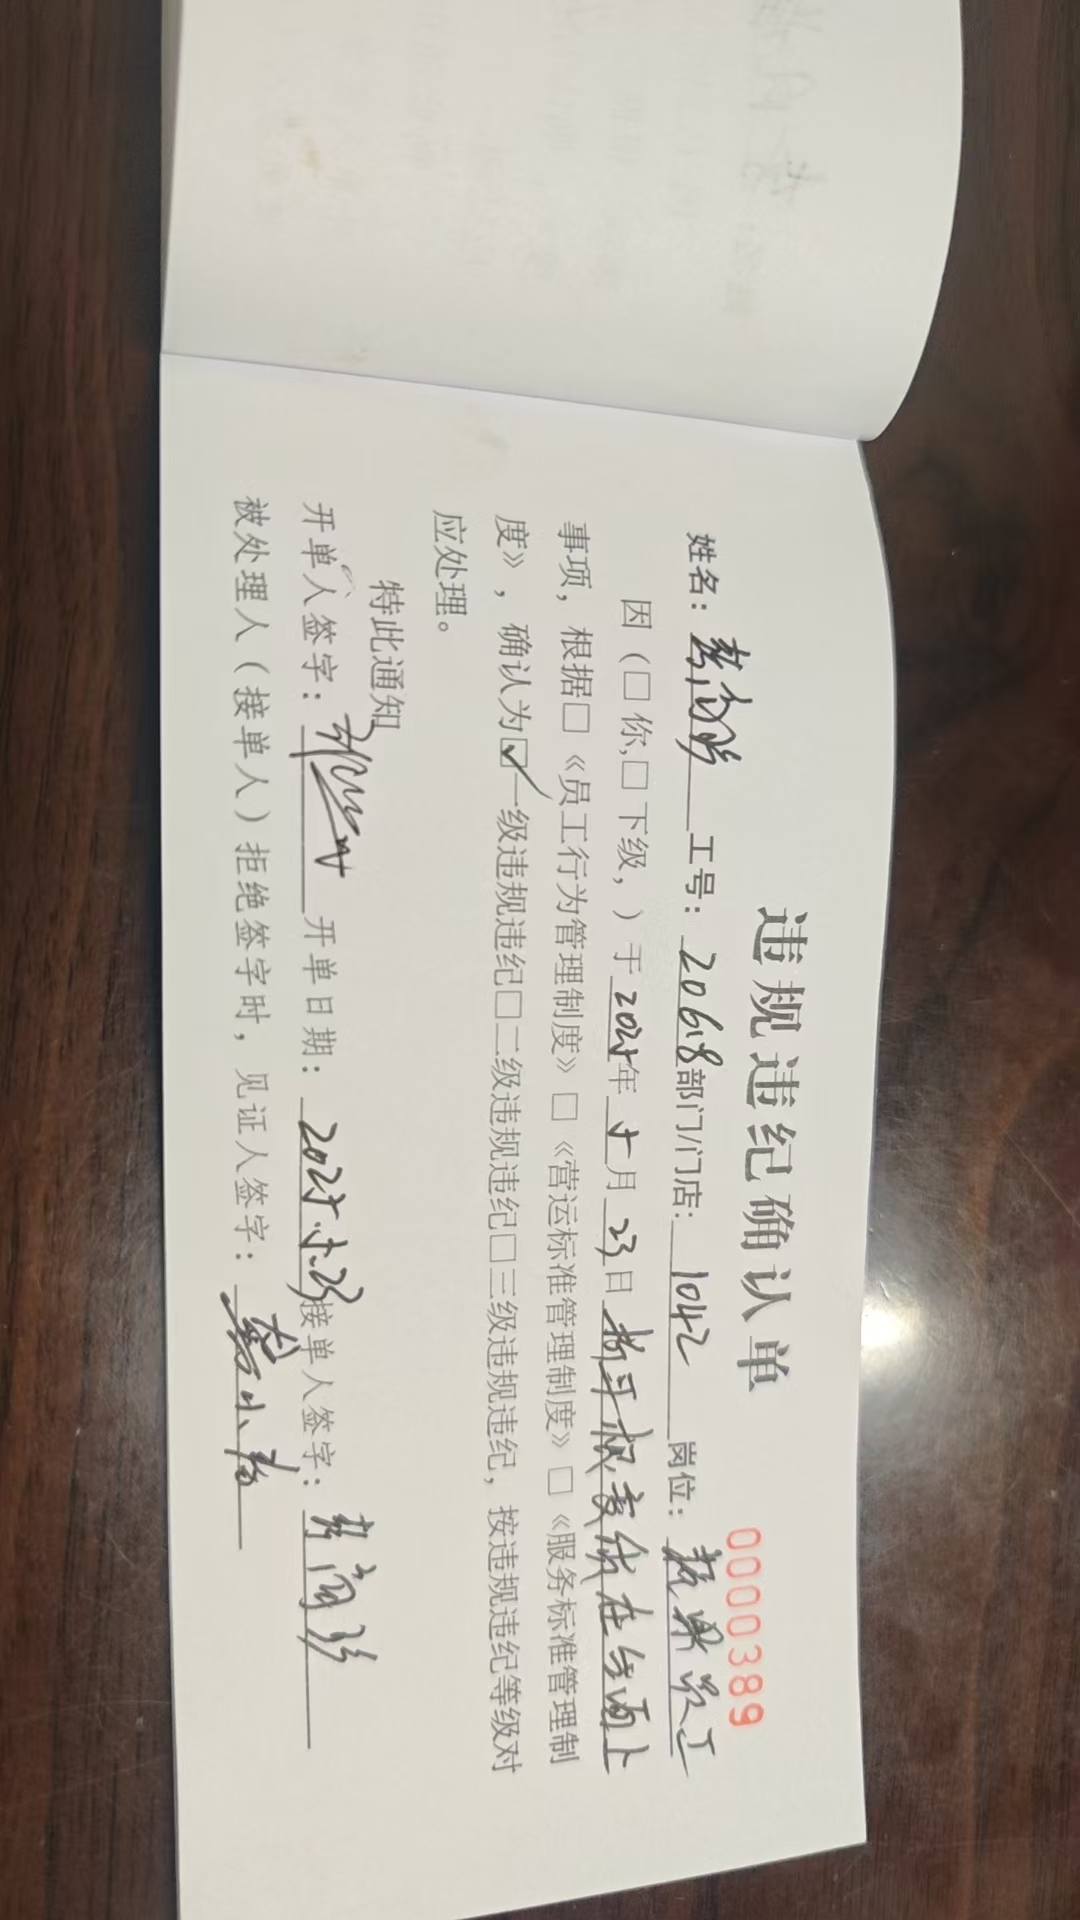 违规违纪确认单
0000389
姓名： 工号：20618部门/门店：1042 岗位： 员工
因（□你,□下级，）于2025年 月23日 在台面上
事项，根据□《员工行为管理制度》□《营运标准管理制度》□《服务标准管理制
度》，确认为☑一级违规违纪□二级违规违纪□三级违规违纪，按违规违纪等级对
应处理。
特此通知
开单人签字： 开单日期：2025. .23接单人签字：
被处理人（接单人）拒绝签字时，见证人签字：